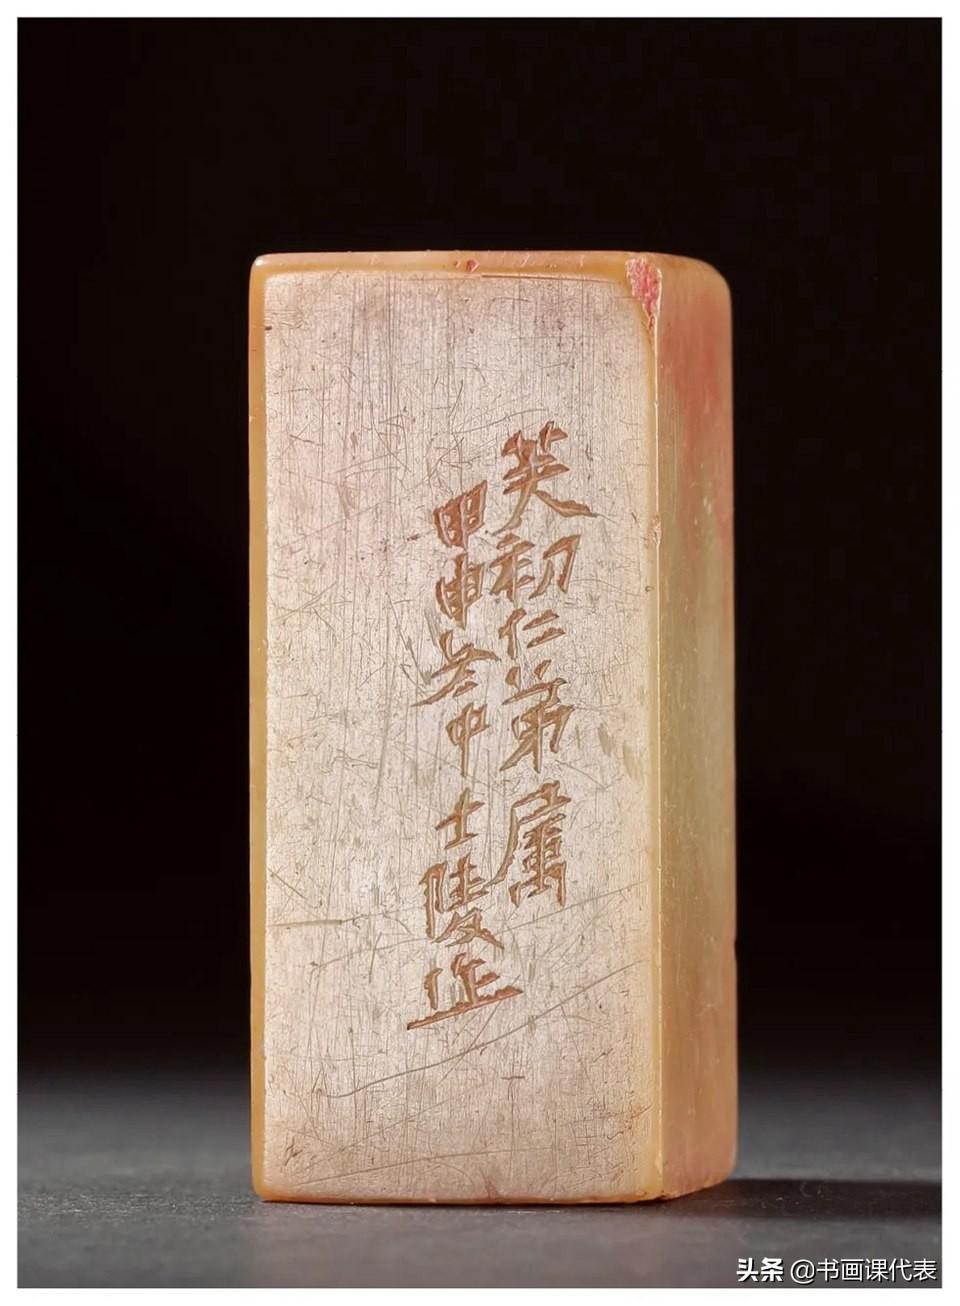 芙初仁弟屬
甲申冬中 士陵作
头条 @书画课代表